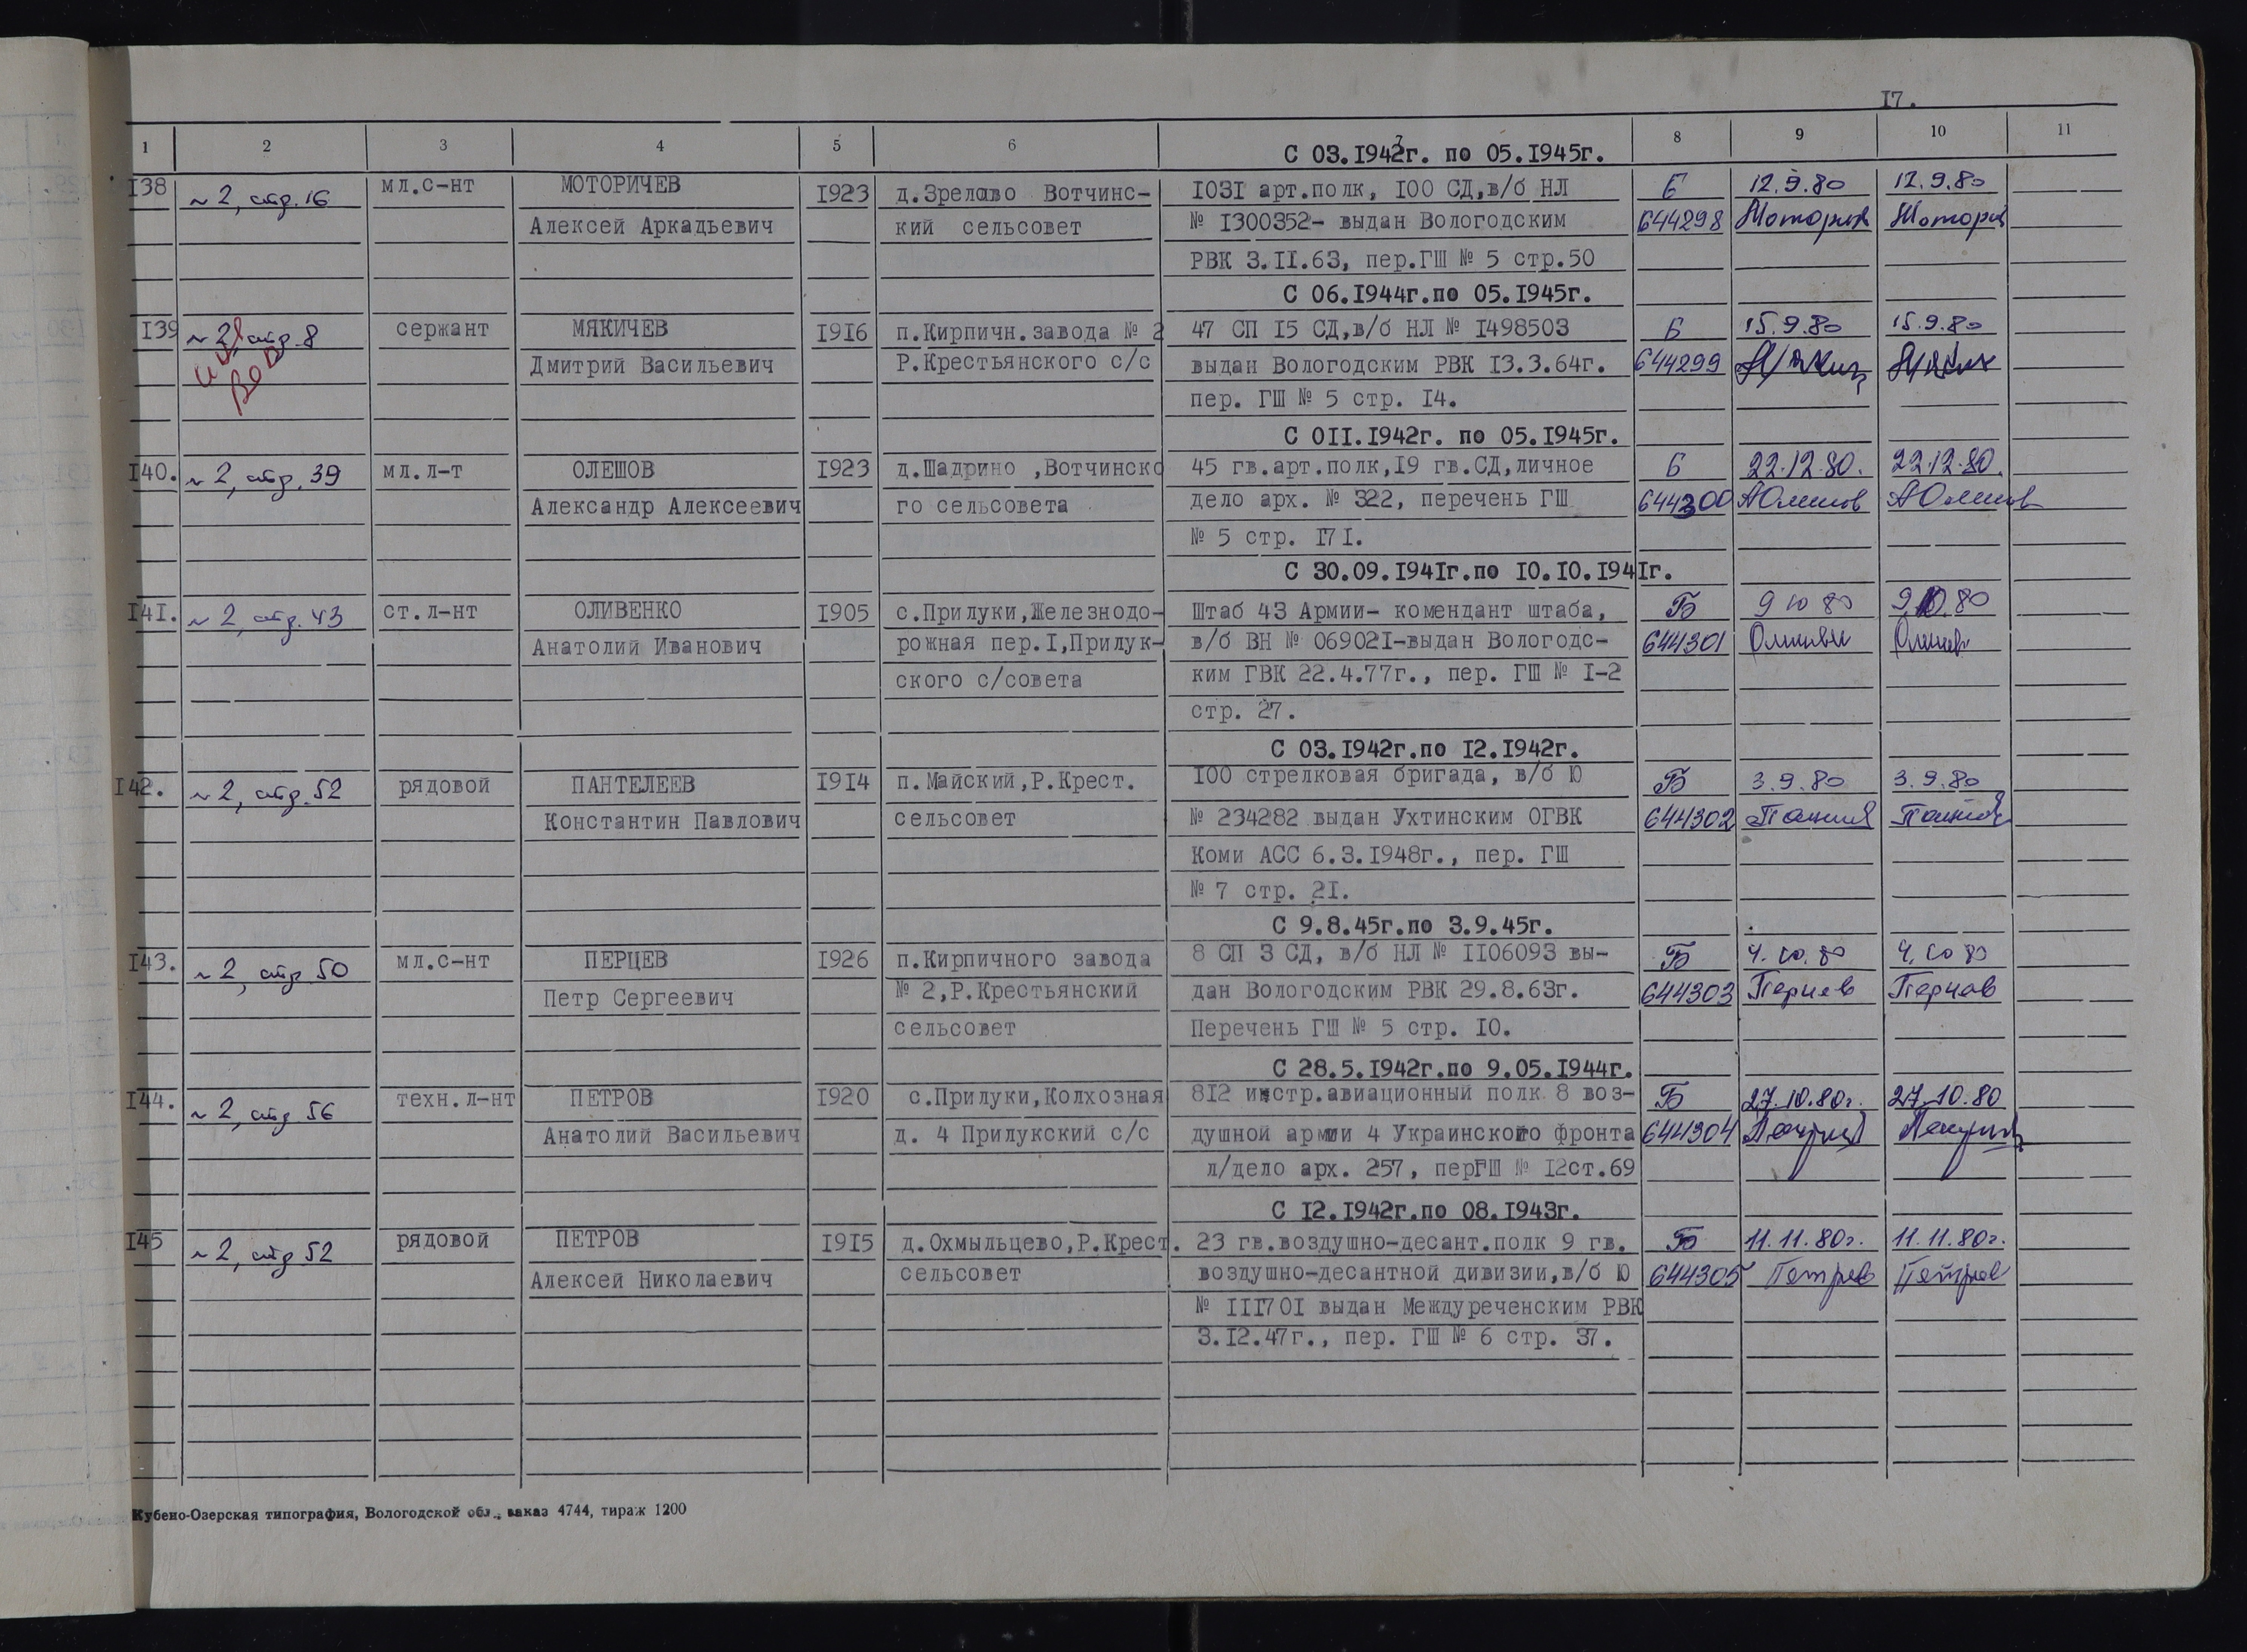 17.
1 2 3 4 5 6 8 9 10 11
С 03.1942г. по 05.1945г.
138 №2, стр. 16 мл.с-нт МОТОРИЧЕВ 1923 д.Зрелово Вотчинс- 1031 арт.полк, 100 СД,в/б НЛ Б 12.9.80 12.9.80
Алексей Аркадьевич кий сельсовет № 1300352- выдан Вологодским 644298
РВК 3.11.63, пер.ГШ № 5 стр.50
С 06.1944г.по 05.1945г.
139 №2, стр. 8 сержант МЯКИЧЕВ 1916 п.Кирпичн.завода № 2 47 СП 15 СД,в/б НЛ № 1498503 Б 15.9.80 15.9.80
Дмитрий Васильевич Р.Крестьянского с/с выдан Вологодским РВК 13.3.64г. 644299
пер. ГШ № 5 стр. 14.
С 011.1942г. по 05.1945г.
140. №2, стр. 39 мл.л-т ОЛЕШОВ 1923 д.Шадрино ,Вотчинско 45 гв.арт.полк,19 гв.СД,личное Б 22.12.80. 22.12.80.
Александр Алексеевич го сельсовета дело арх. № 322, перечень ГШ 644300
№ 5 стр. 171.
С 30.09.1941г.по 10.10.1941г.
141. №2, стр. 43 ст.л-нт ОЛИВЕНКО 1905 с.Прилуки,Железнодо- Штаб 43 Армии- комендант штаба, Б 9 10 80 9.10.80
Анатолий Иванович рожная пер.1,Прилук- в/б ВН № 069021-выдан Вологодс- 644301
ского с/совета ким ГВК 22.4.77г., пер. ГШ № 1-2
стр. 27.
С 03.1942г.по 12.1942г.
142. №2, стр. 52 рядовой ПАНТЕЛЕЕВ 1914 п.Майский,Р.Крест. 100 стрелковая бригада, в/б Ю Б 3.9.80 3.9.80
Константин Павлович сельсовет № 234282 выдан Ухтинским ОГВК 644302
Коми АСС 6.3.1948г., пер. ГШ
№ 7 стр. 21.
С 9.8.45г.по 3.9.45г.
143. №2, стр 50 мл.с-нт ПЕРЦЕВ 1926 п.Кирпичного завода 8 СП 3 СД, в/б НЛ № 1106093 вы- Б 4.10.80 4.10 80
Петр Сергеевич № 2,Р.Крестьянский дан Вологодским РВК 29.8.63г. 644303 Перцев Перцев
сельсовет Перечень ГШ № 5 стр. 10.
С 28.5.1942г.по 9.05.1944г.
144. №2, стр 56 техн.л-нт ПЕТРОВ 1920 с.Прилуки,Колхозная 812 истр.авиационный полк 8 воз- Б 27.10.80г. 27.10.80
Анатолий Васильевич д. 4 Прилукский с/с душной армии 4 Украинского фронта 644304
л/дело арх. 257, перГШ № 12ст.69
С 12.1942г.по 08.1943г.
145 №2, стр 52 рядовой ПЕТРОВ 1915 д.Охмыльцево,Р.Крест. 23 гв.воздушно-десант.полк 9 гв. Б 11.11.80г. 11.11.80г.
Алексей Николаевич сельсовет воздушно-десантной дивизии,в/б Ю 644305 Петров Петров
№ 111701 выдан Междуреченским РВК
3.12.47г., пер. ГШ № 6 стр. 37.
Кубено-Озерская типография, Вологодской обл., заказ 4744, тираж 1200